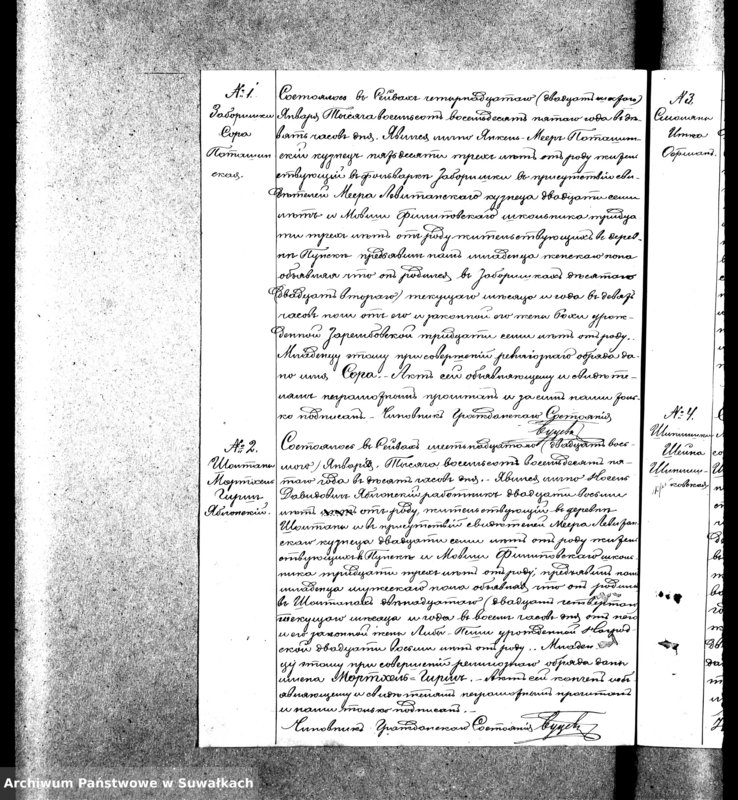 № 1.
Заборишки
Сора
Поташин
ская.
Состоялось въ Рейвахъ четырнадцатаго (двадцать шестаго)
Января Тысяча восемьсотъ восемьдесятъ пятаго года въ де
вять часовъ дня. Явился лично Янкель-Мееръ Поташин
скій кузнецъ пятьдесяти трехъ лѣтъ отъ роду житель
ствующій въ фольваркѣ Заборишки въ присутствіи сви
дѣтелей Меера Левитанскаго кузнеца двадцати семи
лѣтъ и Мовши Филиповскаго школьника тридца
ти трехъ лѣтъ отъ роду жительствующихъ въ дерев
нѣ Пунскъ предъявилъ намъ младенца женскаго пола
объявляя что онъ родился въ Заборишкахъ десятаго
(двадцать втораго) текущаго мѣсяца и года въ девять
часовъ ночи отъ его и законной его жены урож
денной Зарембовской тридцати семи лѣтъ отъ роду.
Младенцу этому при совершеніи религіознаго обряда да
но имя Сора. - Актъ сей объявляющему и свидѣте
лямъ неграмотнымъ прочитанъ и за симъ нами толь
ко подписанъ. - Чиновникъ Гражданскаго Состоянія
№ 2.
Шолтаны
Мортхель
Гиршъ
Яблонскій.
Состоялось въ Рейвахъ шестнадцатаго (двадцать вось
маго) Января. Тысяча восемьсотъ восемьдесятъ пя
таго года въ десять часовъ дня. Явился лично Носель
Давидовъ Яблонскій работникъ двадцати восьми
лѣтъ отъ роду, жительствующій въ деревнѣ
Шолтаны и въ присутствіи свидѣтелей Меера Левитан
скаго кузнеца двадцати семи лѣтъ отъ роду житель
ствующихъ въ Пунскѣ и Мовши Филиповскаго школь
ника тридцати трехъ лѣтъ отъ роду, предъявилъ намъ
младенца мужескаго пола объявляя что онъ родился
въ Шолтанахъ двѣнадцатаго (двадцать четвертаго)
текущаго мѣсяца и года въ восемь часовъ дня отъ него
и его законной жены Либы урожденной
ской двадцати восьми лѣтъ отъ роду. Младен
цу этому при совершеніи религіознаго обряда даны
имена Мортхель-Гиршъ. - Актъ сей объ
являющему и свидѣтелямъ неграмотнымъ прочитанъ
и нами только подписанъ. -
Чиновникъ Гражданскаго Состоянія
№ 3.
Итка
№ 4.
Шиплишки
Шейна
Шиплиш-
ковская
Archiwum Państwowe w Suwałkach